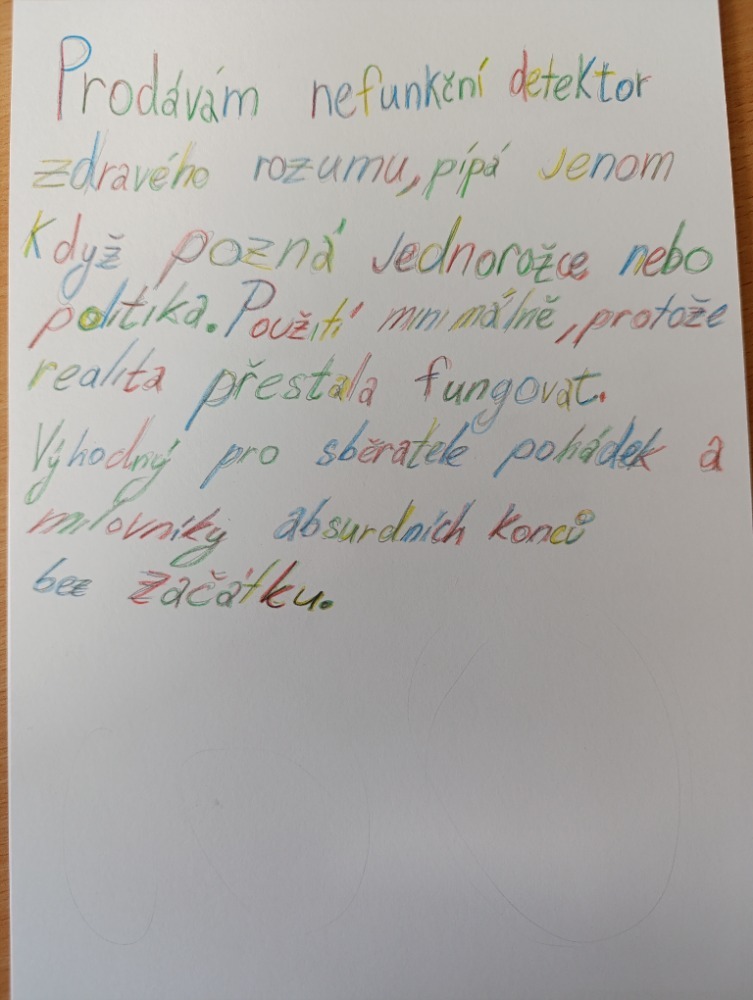 Prodávám nefunkční detektor
zdravého rozumu, pípá jenom
Když pozná jednorožce nebo
politika. Použití minimálně, protože
realita přestala fungovat.
Výhodný pro sběratele pohádek a
milovníky absurdních konců
bez začátku.